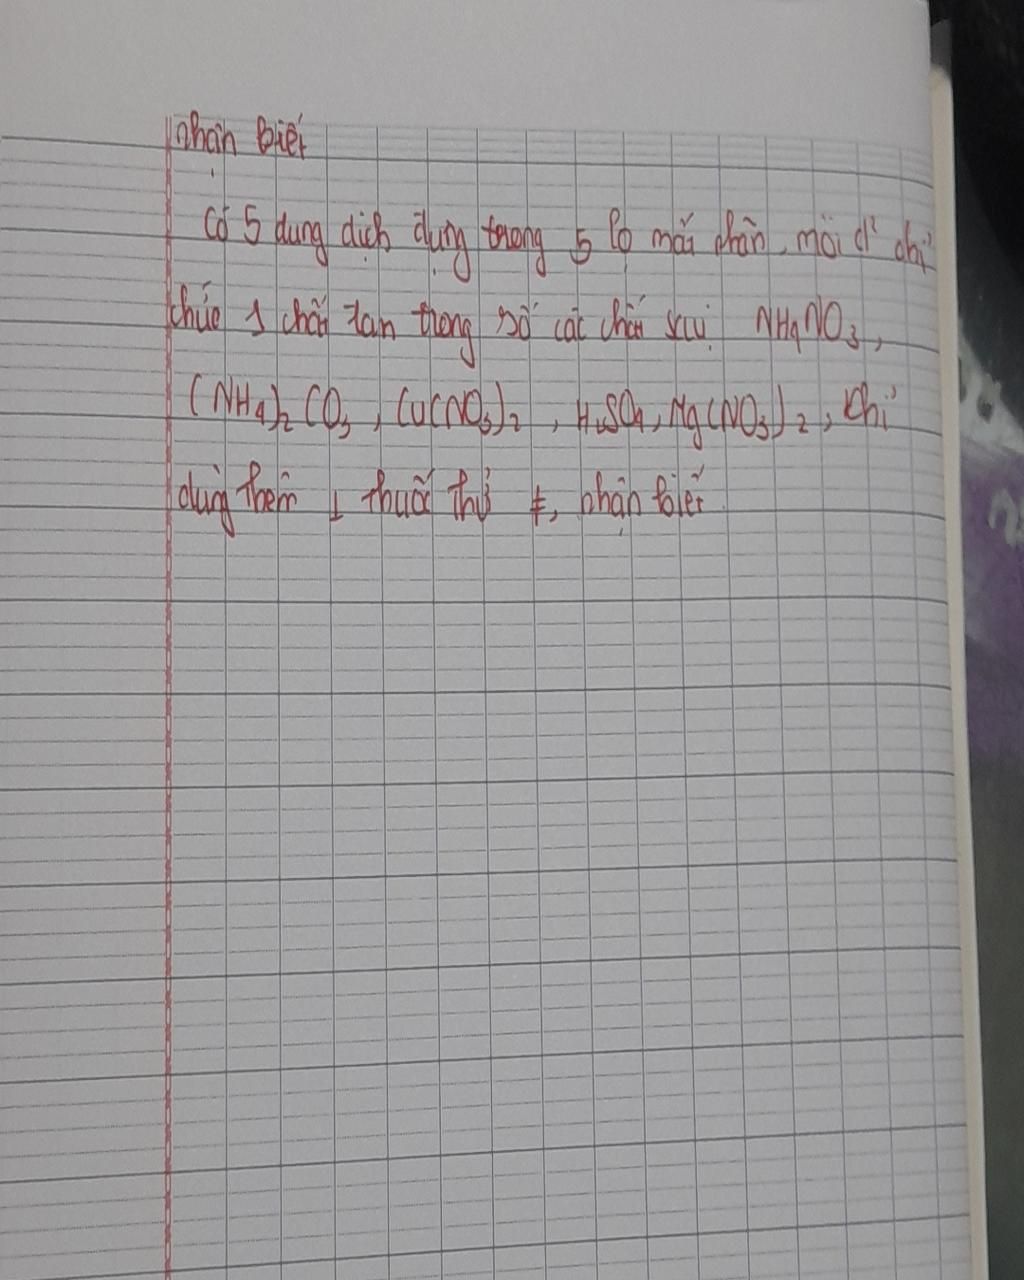 nhận biết
Có 5 dung dịch đựng trong 5 lọ mất nhãn, mỗi d² chỉ
chứa 1 chất tan trong số các chất sau: NH₄NO₃,
(NH₄)₂CO₃, Cu(NO₃)₂, H₂SO₄, Mg(NO₃)₂, chỉ
dùng thêm 1 thuốc thử ≠, nhận biết